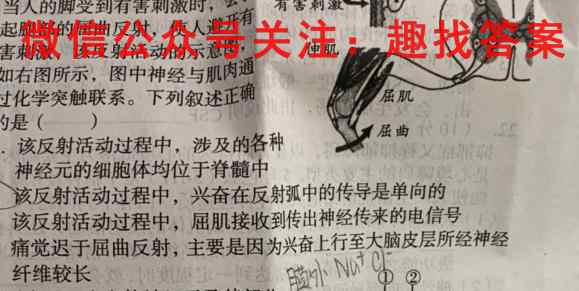 当人的脚受到有害刺激时,会
有害刺激
起腿的屈曲反射,使人避开有
微信公众号关注:趣找答案
害刺激,该反射活动的示意图
伸肌
如右图所示,图中神经与肌肉通
过化学突触联系。下列叙述正确
的是( )
屈肌
屈曲
22. (10分)
.该反射活动过程中,涉及的各种
神经元的细胞体均位于脊髓中
该反射活动过程中,兴奋在反射弧中的传导是单向的
该反射活动过程中,屈肌接收到传出神经传来的电信号
痛觉迟于屈曲反射,主要是因为兴奋上行至大脑皮层所经神经
纤维较长
Na⁺ Cl⁻
① ②